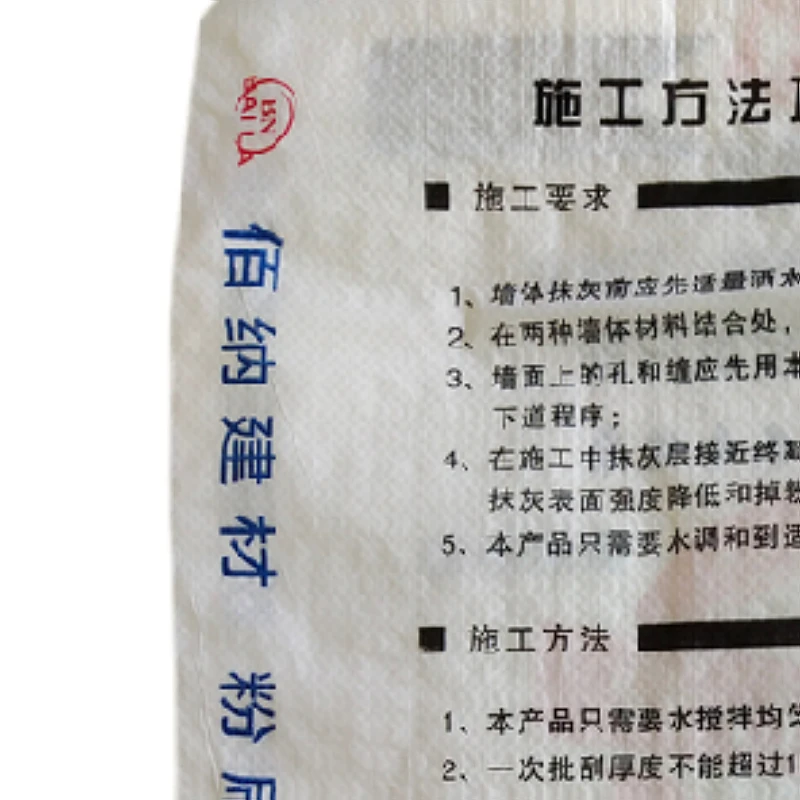 佰纳建材 粉
施工方法
施工要求
1、墙体抹灰前应先适量洒水
2、在两种墙体材料结合处,
3、墙面上的孔和缝应先用本
下道程序;
4、在施工中抹灰层接近终凝
抹灰表面强度降低和掉粉
5、本产品只需要水调和到适
施工方法
1、本产品只需要水搅拌均匀
2、一次批刮厚度不能超过1